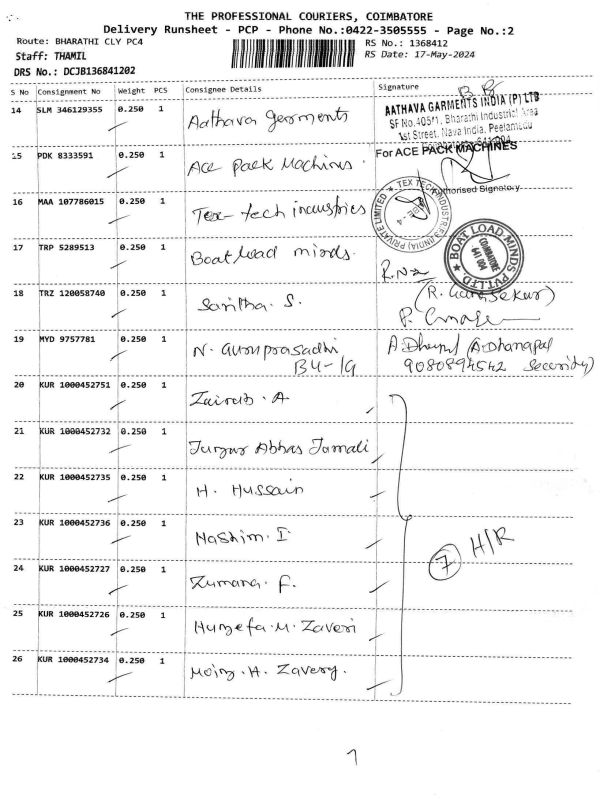 THE PROFESSIONAL COURIERS, COIMBATORE
Delivery Runsheet - PCP - Phone No.:0422-3505555 - Page No.:2
Route: BHARATHI CLY PC4
RS No.: 1368412
Staff: THAMIL
RS Date: 17-May-2024
DRS No.: DCJB136841202
S No Consignment No Weight PCS Consignee Details Signature
14 SLM 346129355 0.250 1 Aathava garments
AATHAVA GARMENTS INDIA (P) LTD
SF No.405/1, Bharathi Industrial Area
1st Street, Nava India, Peelamedu
15 PDK 8333591 0.250 1 Ace pack Machines.
For ACE PACK MACHINES
Authorised Signatory
16 MAA 107786015 0.250 1 Tex-tech industries
TEX TECH INDUSTRIES (INDIA) PRIVATE LIMITED
17 TRP 5289513 0.250 1 Boatload minds.
BOAT LOAD MINDS PVT.LTD.
COIMBATORE
641 004
18 TRZ 120058740 0.250 1 Saritha. S.
19 MYD 9757781 0.250 1 N. Guruprasadhi
B4-19
A.Dhanapal
9080894542 Security)
20 KUR 1000452751 0.250 1 Zainab. A
21 KUR 1000452732 0.250 1 Abbas Jamali
22 KUR 1000452735 0.250 1 H. Hussain
23 KUR 1000452736 0.250 1 Hashim. I
7 H/R
24 KUR 1000452727 0.250 1 Zumana. F.
25 KUR 1000452726 0.250 1 Huzefa. M. Zaveri
26 KUR 1000452734 0.250 1 Moiz. H. Zavery.
7